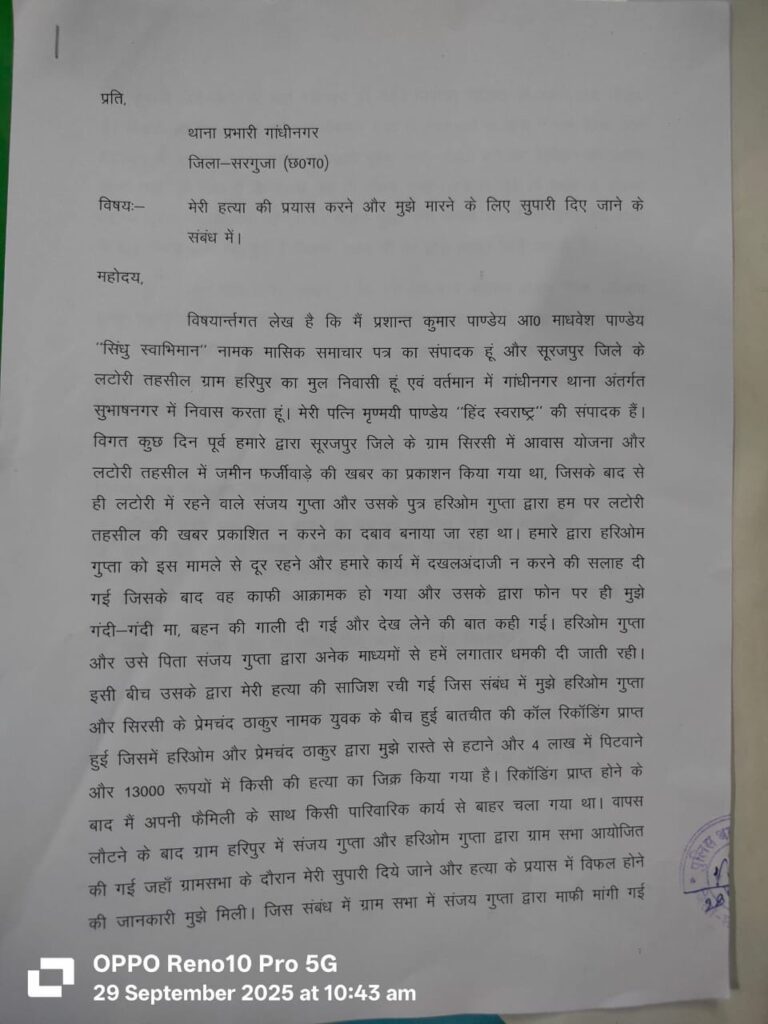 प्रति,
थाना प्रभारी गांधीनगर
जिला–सरगुजा (छ0ग0)
विषयः– मेरी हत्या की प्रयास करने और मुझे मारने के लिए सुपारी दिए जाने के
संबंध में।
महोदय,
विषयार्न्तगत लेख है कि मैं प्रशान्त कुमार पाण्डेय आ0 माधवेश पाण्डेय
"सिंधु स्वाभिमान" नामक मासिक समाचार पत्र का संपादक हूं और सूरजपुर जिले के
लटोरी तहसील ग्राम हरिपुर का मुल निवासी हूं एवं वर्तमान में गांधीनगर थाना अंतर्गत
सुभाषनगर में निवास करता हूं। मेरी पत्नि मृण्मयी पाण्डेय "हिंद स्वराष्ट्र" की संपादक हैं।
विगत कुछ दिन पूर्व हमारे द्वारा सूरजपुर जिले के ग्राम सिरसी में आवास योजना और
लटोरी तहसील में जमीन फर्जीवाड़े की खबर का प्रकाशन किया गया था, जिसके बाद से
ही लटोरी में रहने वाले संजय गुप्ता और उसके पुत्र हरिओम गुप्ता द्वारा हम पर लटोरी
तहसील की खबर प्रकाशित न करने का दबाव बनाया जा रहा था। हमारे द्वारा हरिओम
गुप्ता को इस मामले से दूर रहने और हमारे कार्य में दखलअंदाजी न करने की सलाह दी
गई जिसके बाद वह काफी आक्रामक हो गया और उसके द्वारा फोन पर ही मुझे
गंदी–गंदी मा, बहन की गाली दी गई और देख लेने की बात कही गई। हरिओम गुप्ता
और उसे पिता संजय गुप्ता द्वारा अनेक माध्यमों से हमें लगातार धमकी दी जाती रही।
इसी बीच उसके द्वारा मेरी हत्या की साजिश रची गई जिस संबंध में मुझे हरिओम गुप्ता
और सिरसी के प्रेमचंद ठाकुर नामक युवक के बीच हुई बातचीत की कॉल रिकॉडिंग प्राप्त
हुई जिसमें हरिओम और प्रेमचंद ठाकुर द्वारा मुझे रास्ते से हटाने और 4 लाख में पिटवाने
और 13000 रूपयों में किसी की हत्या का जिक्र किया गया है। रिकॉडिंग प्राप्त होने के
बाद मैं अपनी फैमिली के साथ किसी पारिवारिक कार्य से बाहर चला गया था। वापस
लौटने के बाद ग्राम हरिपुर में संजय गुप्ता और हरिओम गुप्ता द्वारा ग्राम सभा आयोजित
की गई जहाँ ग्रामसभा के दौरान मेरी सुपारी दिये जाने और हत्या के प्रयास में विफल होने
की जानकारी मुझे मिली। जिस संबंध में ग्राम सभा में संजय गुप्ता द्वारा माफी मांगी गई
पुलिस
OPPO Reno10 Pro 5G
29 September 2025 at 10:43 am